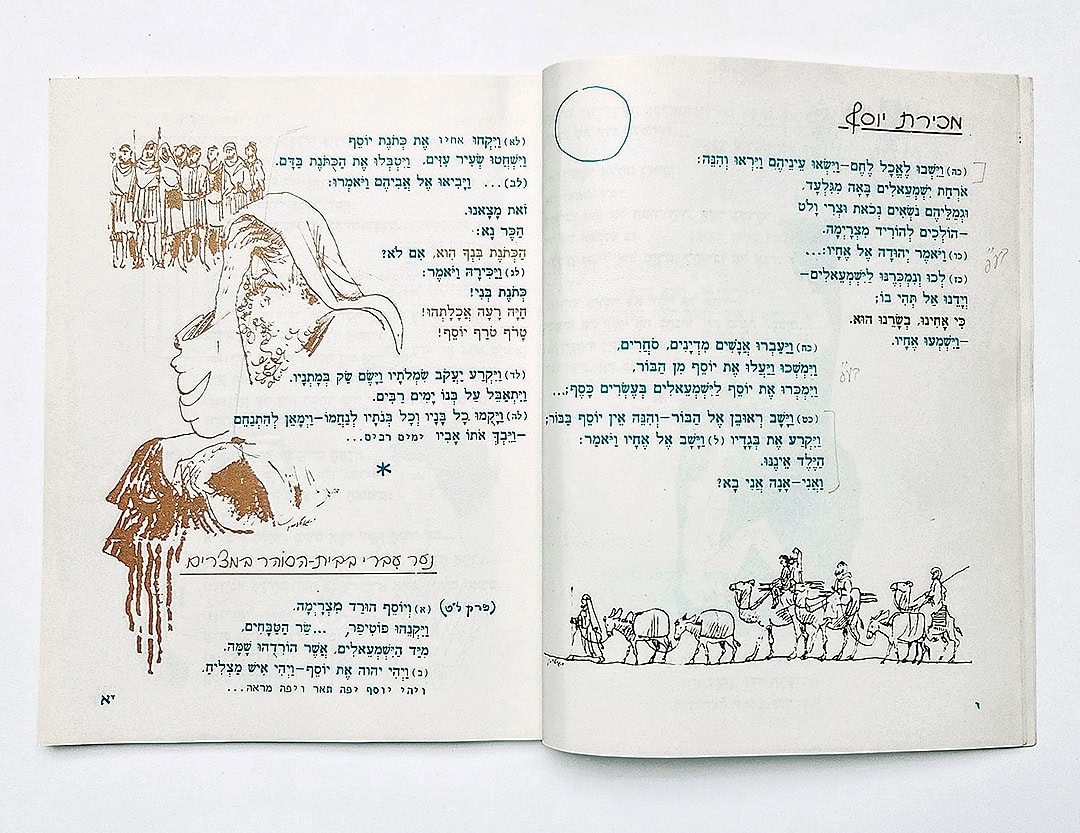 מכירת יוסף
(כה) וַיֵּשְׁבוּ לֶאֱכָל לֶחֶם–וַיִּשְׂאוּ עֵינֵיהֶם וַיִּרְאוּ וְהִנֵּה:
אֹרְחַת יִשְׁמְעֵאלִים בָּאָה מִגִּלְעָד.
וּגְמַלֵּיהֶם נֹשְׂאִים נְכֹאת וּצְרִי וָלֹט
–הוֹלְכִים לְהוֹרִיד מִצְרָיְמָה.
(כו) וַיֹּאמֶר יְהוּדָה אֶל אֶחָיו:...
(כז) לְכוּ וְנִמְכְּרֶנּוּ לַיִּשְׁמְעֵאלִים–
וְיָדֵנוּ אַל תְּהִי בוֹ;
כִּי אָחִינוּ, בְשָׂרֵנוּ הוּא.
–וַיִּשְׁמְעוּ אֶחָיו.
(כח) וַיַּעַבְרוּ אֲנָשִׁים מִדְיָנִים, סֹחֲרִים,
וַיִּמְשְׁכוּ וַיַּעֲלוּ אֶת יוֹסֵף מִן הַבּוֹר,
וַיִּמְכְּרוּ אֶת יוֹסֵף לַיִּשְׁמְעֵאלִים בְּעֶשְׂרִים כָּסֶף;...
(כט) וַיָּשָׁב רְאוּבֵן אֶל הַבּוֹר–וְהִנֵּה אֵין יוֹסֵף בַּבּוֹר;
וַיִּקְרַע אֶת בְּגָדָיו (ל) וַיָּשָׁב אֶל אֶחָיו וַיֹּאמַר:
הַיֶּלֶד אֵינֶנּוּ.
וַאֲנִי–אָנָה אֲנִי בָא?
י
(לא) וַיִּקְחוּ אחיו אֶת כְּתֹנֶת יוֹסֵף
וַיִּשְׁחֲטוּ שְׂעִיר עִזִּים, וַיִּטְבְּלוּ אֶת הַכֻּתֹּנֶת בַּדָּם.
(לב)... וַיָּבִיאוּ אֶל אֲבִיהֶם וַיֹּאמְרוּ:
זֹאת מָצָאנוּ.
הַכֶּר נָא:
הַכְּתֹנֶת בִּנְךָ הִוא, אִם לֹא?
(לג) וַיַּכִּירָהּ וַיֹּאמֶר:
כְּתֹנֶת בְּנִי!
חַיָּה רָעָה אֲכָלָתְהוּ!
טָרֹף טֹרַף יוֹסֵף!
(לד) וַיִּקְרַע יַעֲקֹב שִׂמְלֹתָיו וַיָּשֶׂם שַׂק בְּמָתְנָיו.
וַיִּתְאַבֵּל עַל בְּנוֹ יָמִים רַבִּים.
(לה) וַיָּקֻמוּ כָל בָּנָיו וְכָל בְּנֹתָיו לְנַחֲמוֹ–וַיְמָאֵן לְהִתְנַחֵם
–וַיֵּבְךְּ אֹתוֹ אָבִיו ימים רבים...
*
נער עברי בבית-הסוהר במצרים
(פרק ל"ט) (א) וְיוֹסֵף הוּרַד מִצְרָיְמָה.
וַיִּקְנֵהוּ פּוֹטִיפַר, ...שַׂר הַטַּבָּחִים,
מִיַּד הַיִּשְׁמְעֵאלִים, אֲשֶׁר הוֹרִדֻהוּ שָׁמָּה.
(ב) וַיְהִי יהוה אֶת יוֹסֵף–וַיְהִי אִישׁ מַצְלִיחַ.
ויהי יוסף יפה תאר ויפה מראה...
יא